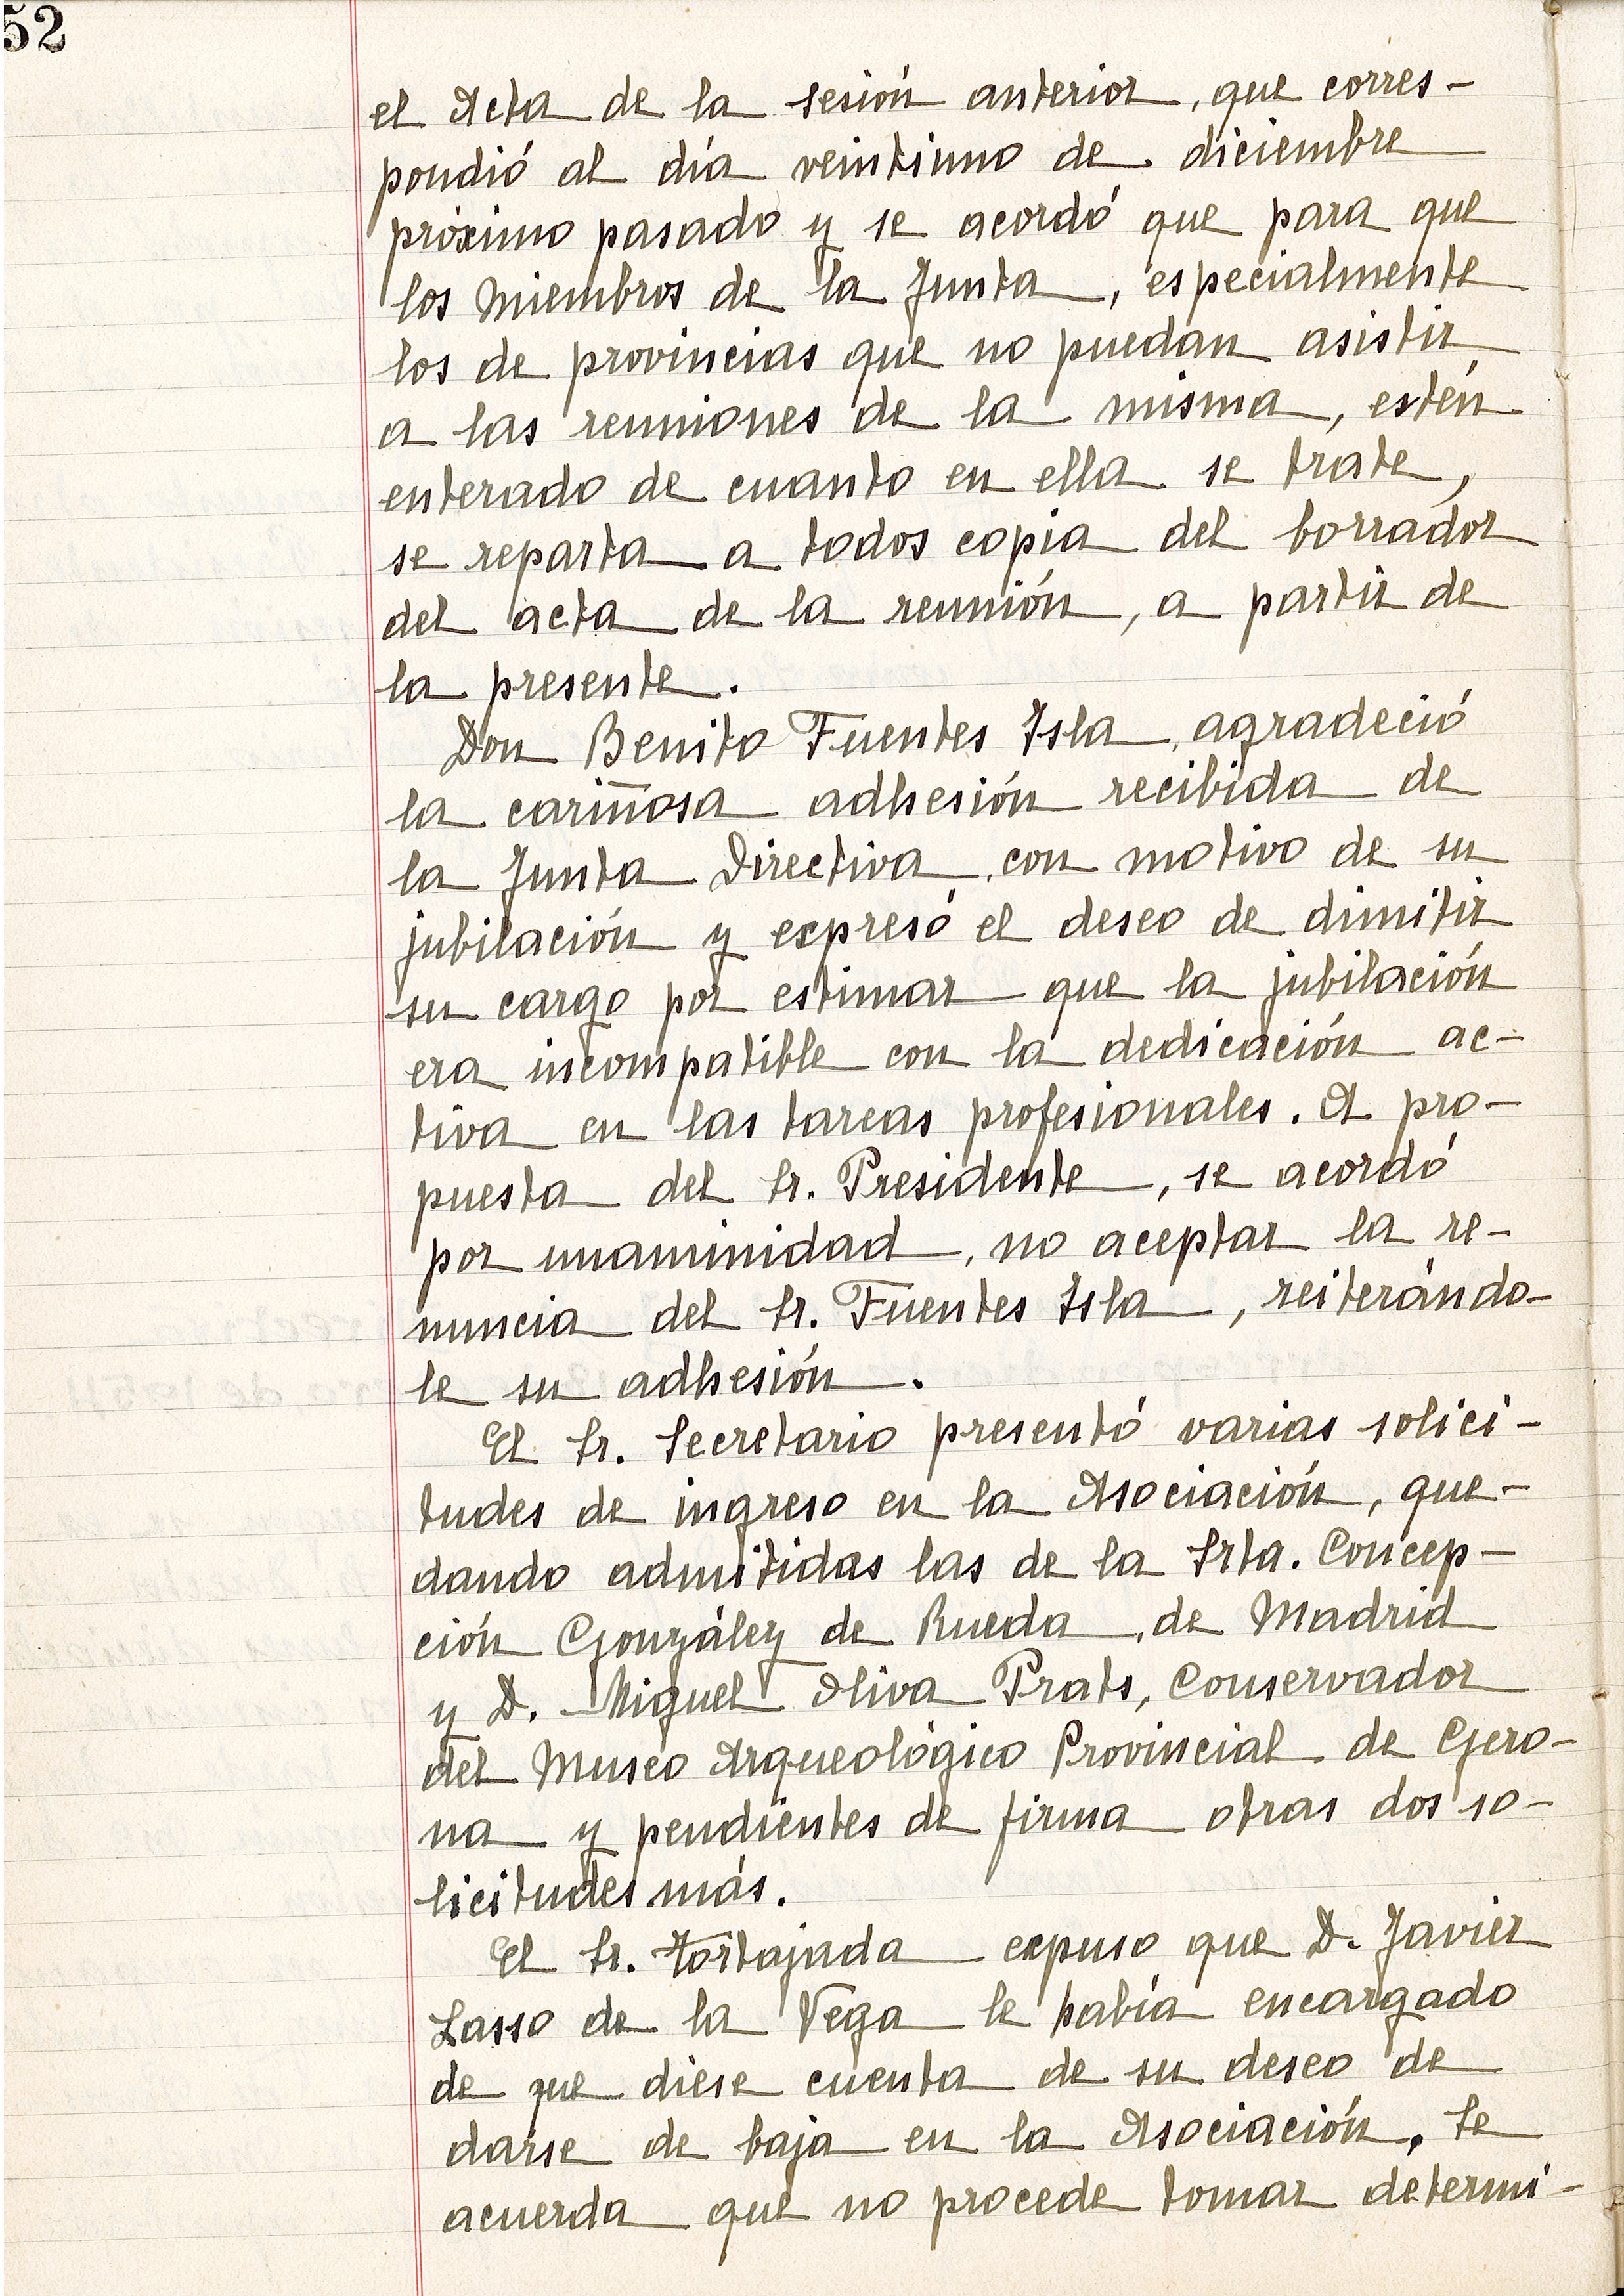 52
el Acta de la sesión anterior, que corres-
pondió al día veintiuno de diciembre
próximo pasado y se acordó que para que
los Miembros de la Junta, especialmente
los de provincias que no puedan asistir
a las reuniones de la misma, estén
enterado de cuanto en ella se trate,
se reparta a todos copia del borrador
del acta de la reunión, a partir de
la presente.
Don Benito Fuentes Isla, agradeció
la cariñosa adhesión recibida de
la Junta Directiva, con motivo de su
jubilación y expresó el deseo de dimitir
su cargo por estimar que la jubilación
era incompatible con la dedicación ac-
tiva en las tareas profesionales. A pro-
puesta del Sr. Presidente, se acordó
por unaminidad, no aceptar la re-
nuncia del Sr. Fuentes Isla, reiterándo-
le su adhesión.
El Sr. Secretario presentó varias solici-
tudes de ingreso en la Asociación, que-
dando admitidas las de la Srta. Concep-
ción González de Rueda, de Madrid
y D. Miguel Oliva Prats, Conservador
del Museo Arqueológico Provincial de Gero-
na y pendientes de firma otras dos so-
licitudes más.
El Sr. Tortajada expuso que D. Javier
Lasso de la Vega le había encargado
de que diese cuenta de su deseo de
darse de baja en la Asociación. Se
acuerda que no procede tomar determi-